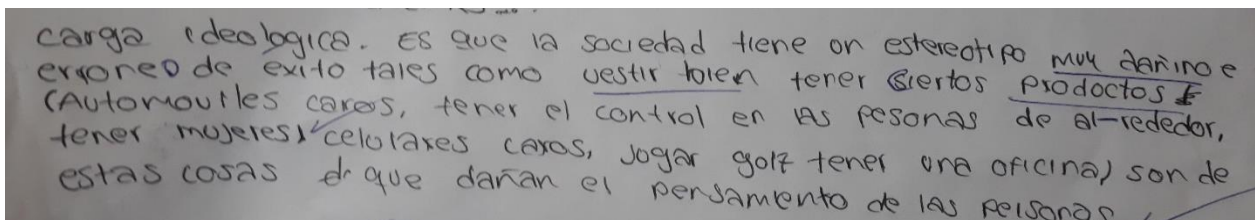 carga ideologica. Es que la sociedad tiene on estereotipo muy dañino e
erroneo de exito tales como vestir bien tener Siertos prodoctos
(Automoviles caros, tener el control en las pesonas de al-rededor,
tener mujeres, celolares caros, jogar golf tener una oficina) son de
estas cosas que dañan el pensamiento de las personas